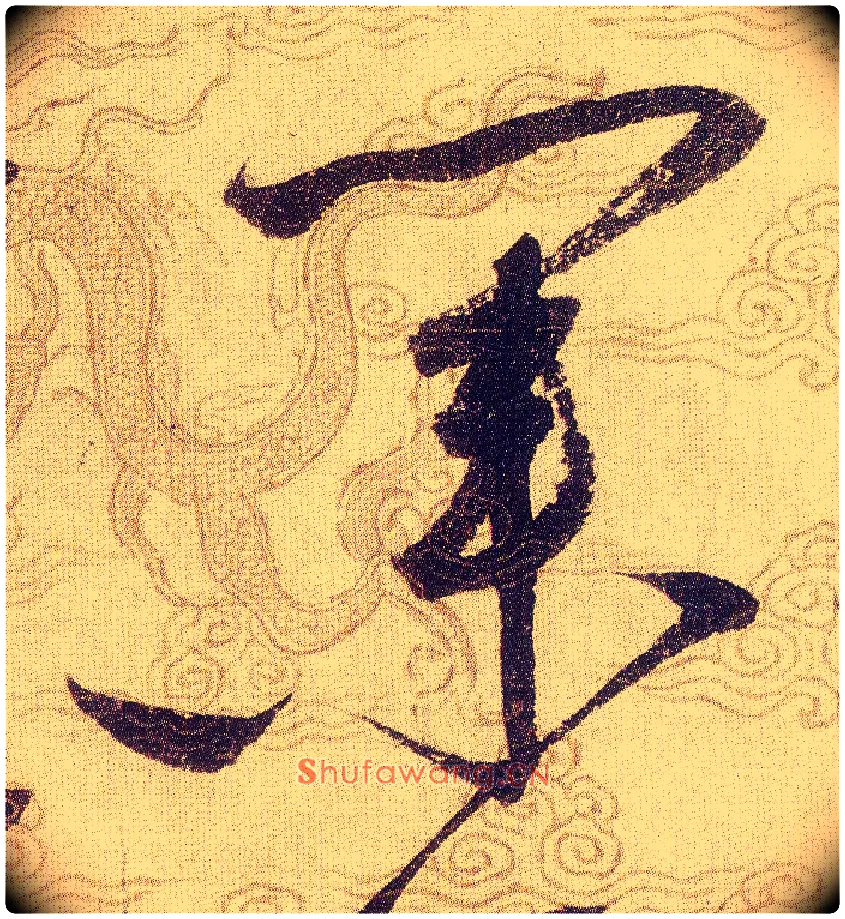 軍
Shufawang.CN